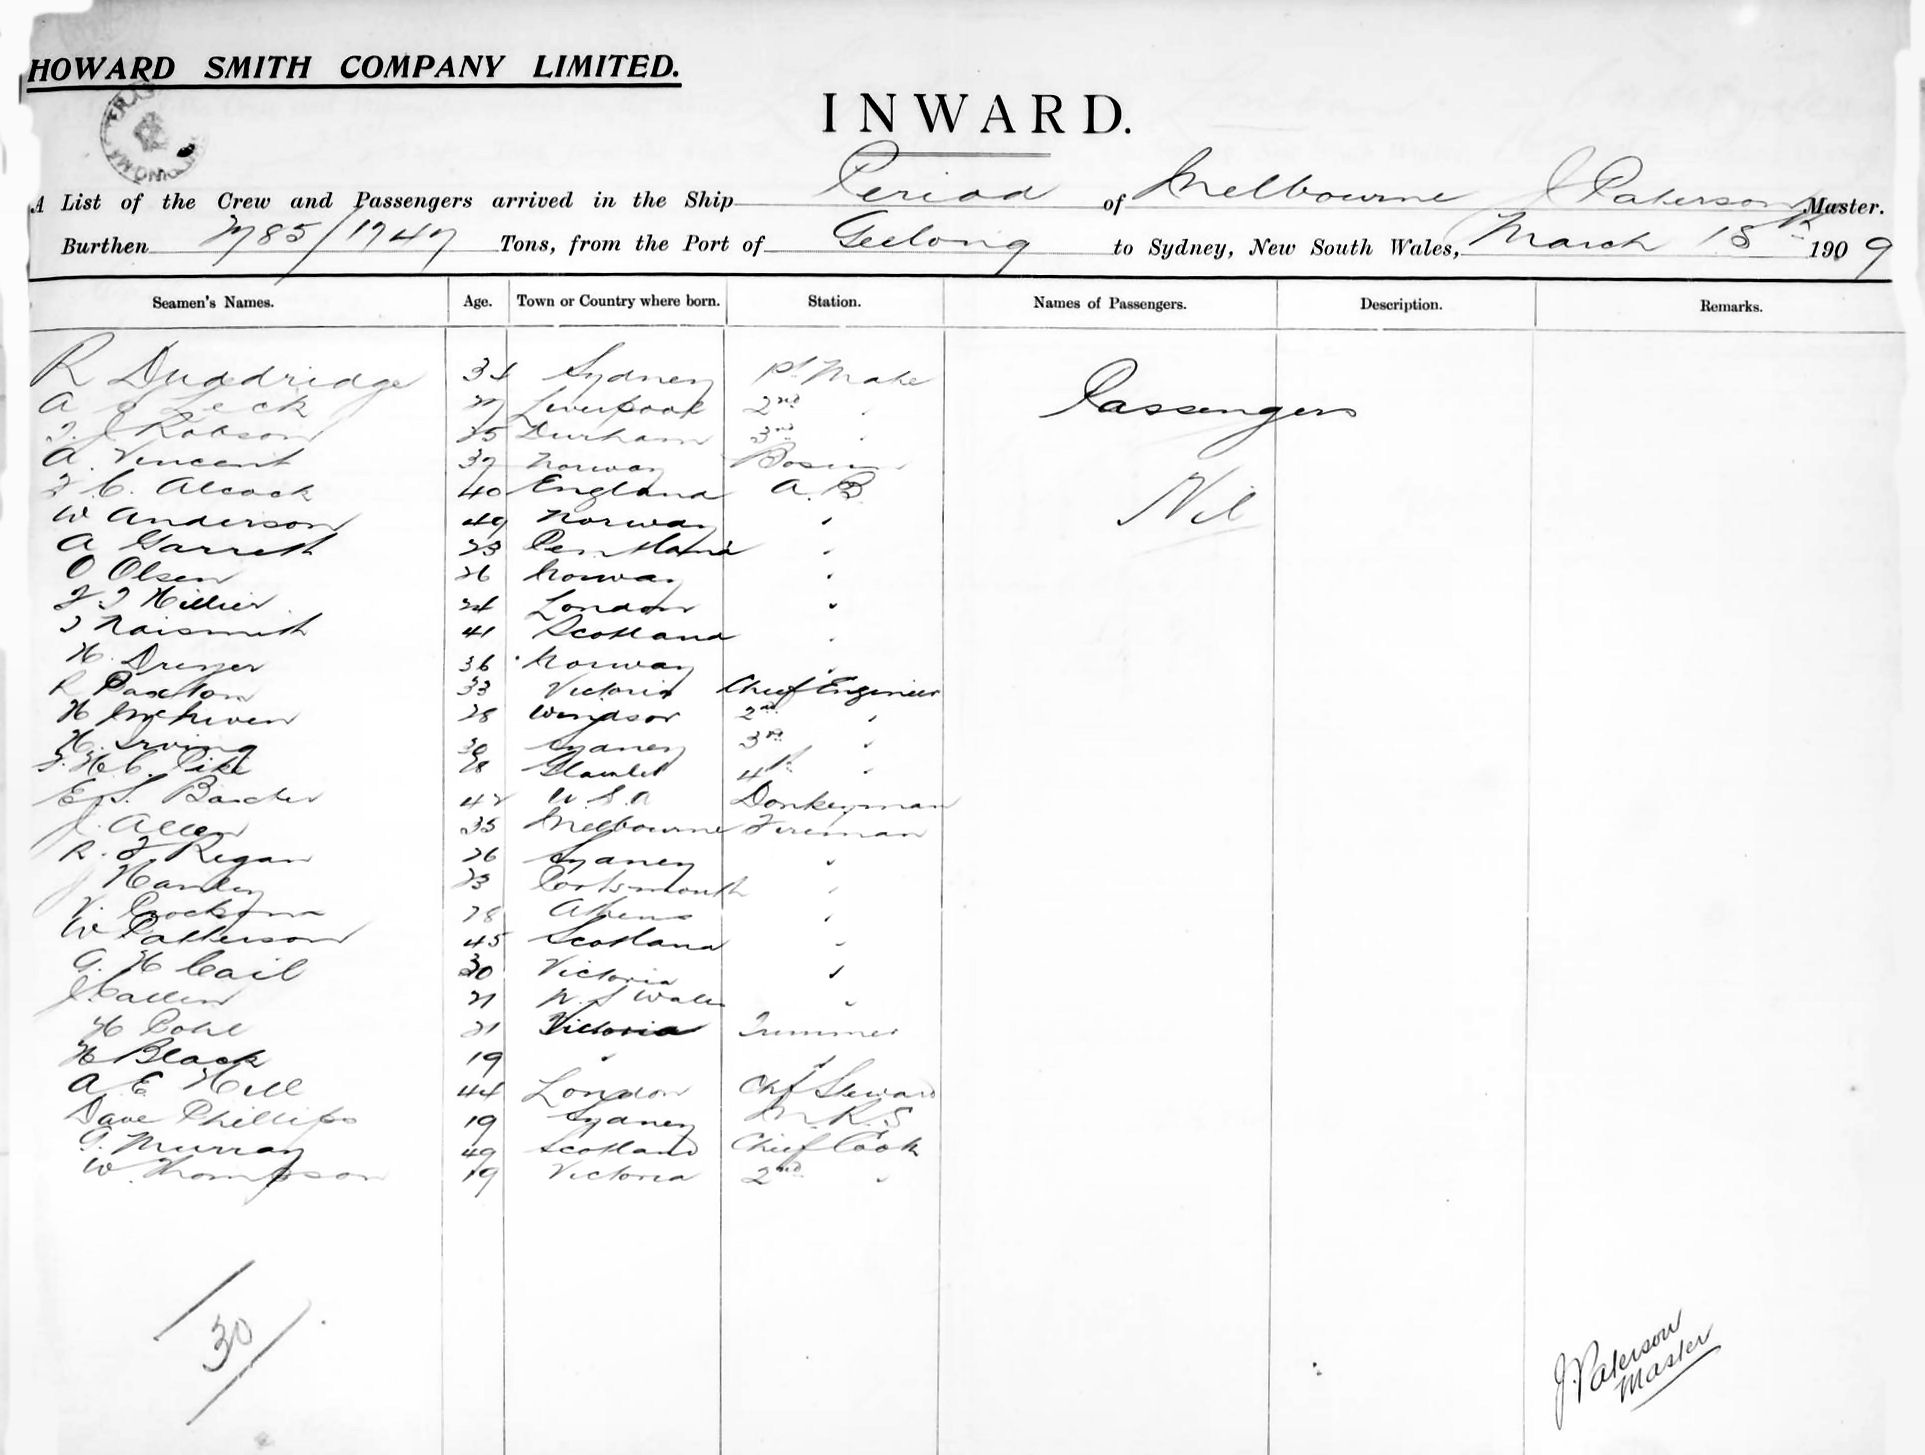 HOWARD SMITH COMPANY LIMITED.
INWARD.
A List of the Crew and Passengers arrived in the Ship Period of Melbourne J Paterson Master.
Burthen 2785/1747 Tons, from the Port of Geelong to Sydney, New South Wales, March 15th 1909
Seamen's Names. Age. Town or Country where born. Station. Names of Passengers. Description. Remarks.
R Duddridge 34 Sydney 1st Mate
A Leck 27 Liverpool 2nd "
Passengers
T. J Robson 25 Durham 3rd "
A. Vincent 37 Norway Bosun
F C. Alcock 40 England A.B.
Nil
W Anderson 49 Norway "
A Garrett 23 Pentland "
O Olsen 26 Norway "
F. T Hillier 24 London "
J Naismith 41 Scotland "
H. Dreyer 36 Norway "
R Paxton 33 Victoria Chief Engineer
H McNiven 28 Windsor 2nd "
H. Irving 30 Sydney 3rd "
F. H. C. Pike 28 4th "
E. S. 42 U.S.A Donkeyman
J. Allen 35 Melbourne Fireman
R. F Regan 26 Sydney "
J Hanley 23 Portsmouth "
V. 28 Athens "
W Patterson 45 Scotland "
G. H Cail 30 Victoria "
J. Callen 21 N. S Wales "
H Pohl 21 Victoria Trimmer
H Black 19 " "
A E Hill 44 London Chf Steward
Dave Phillips 19 Sydney M.R.S
G. Murray 49 Scotland Chief Cook
W. Thompson 19 Victoria 2nd "
30
J. Paterson
Master